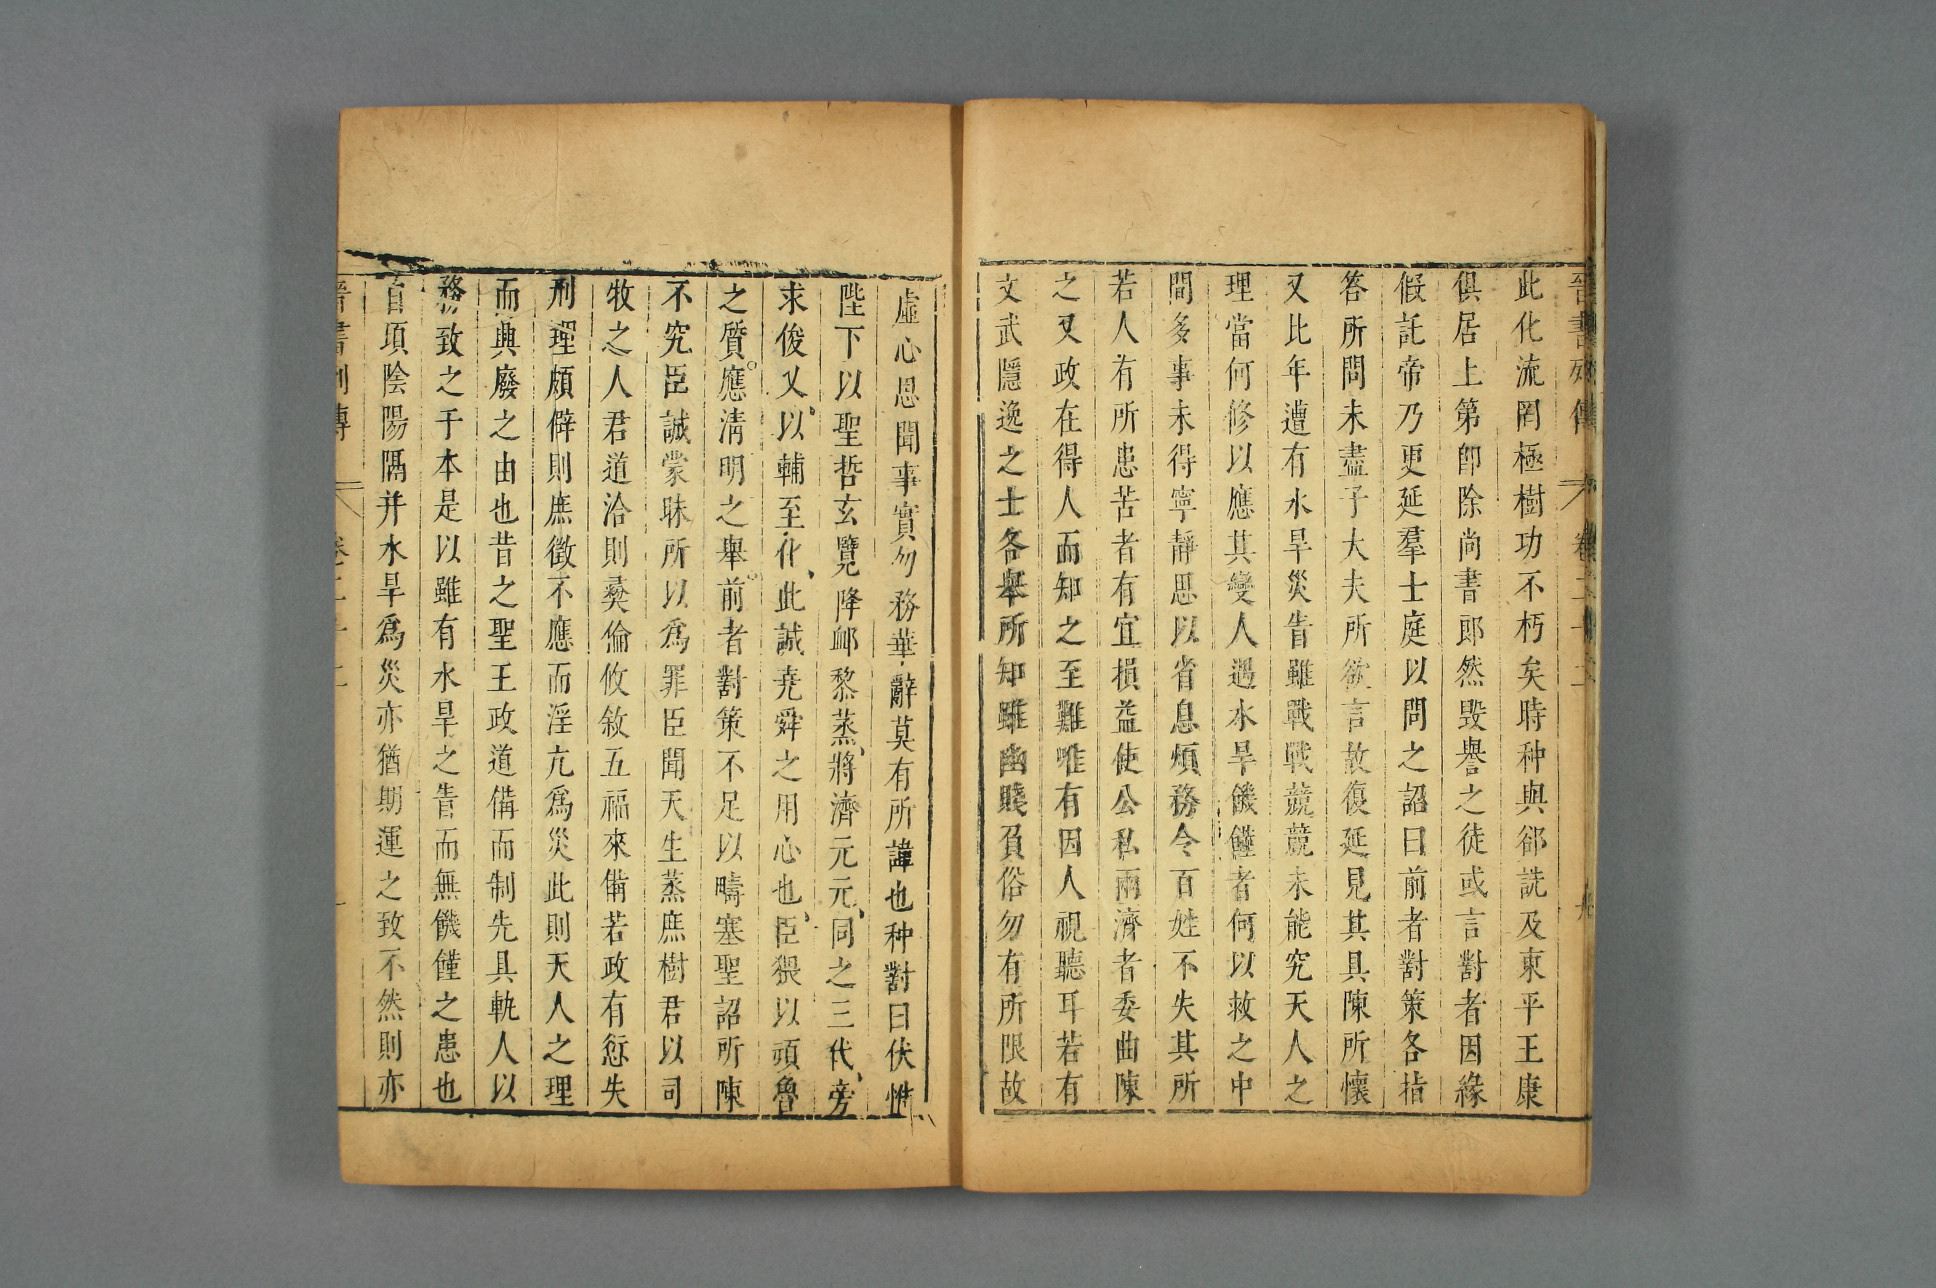 晉書列傳 卷二十二 九
此化流罔極樹功不朽矣時种與郤詵及東平王康
俱居上第卽除尚書郎然毀譽之徒或言對者因緣
假託帝乃更延羣士庭以問之詔曰前者對策各指
答所問未盡子大夫所欲言故復延見其具陳所懷
又比年遭有水旱災眚雖戰戰兢兢未能究天人之
理當何修以應其變人遇水旱饑饉者何以救之中
間多事未得寧靜思以省息煩務令百姓不失其所
若人有所患苦者有宜損益使公私兩濟者委曲陳
之又政在得人而知之至難唯有因人視聽耳若有
文武隱逸之士各舉所知雖幽賤負俗勿有所限故
虛心思聞事實勿務華辭莫有所諱也种對曰伏惟
陛下以聖哲玄覽降卹黎蒸將濟元元同之三代旁
求俊乂以輔至化此誠堯舜之用心也臣猥以頑魯
之質應清明之舉前者對策不足以疇塞聖詔所陳
不究臣誠蒙昧所以爲罪臣聞天生蒸庶樹君以司
牧之人君道洽則彝倫攸敘五福來備若政有愆失
刑理頗僻則庶徵不應而淫亢爲災此則天人之理
而興廢之由也昔之聖王政道備而制先具軌人以
務致之于本是以雖有水旱之眚而無饑饉之患也
自頃陰陽隔并水旱爲災亦猶期運之致不然則亦
晉書列傳 卷二十二